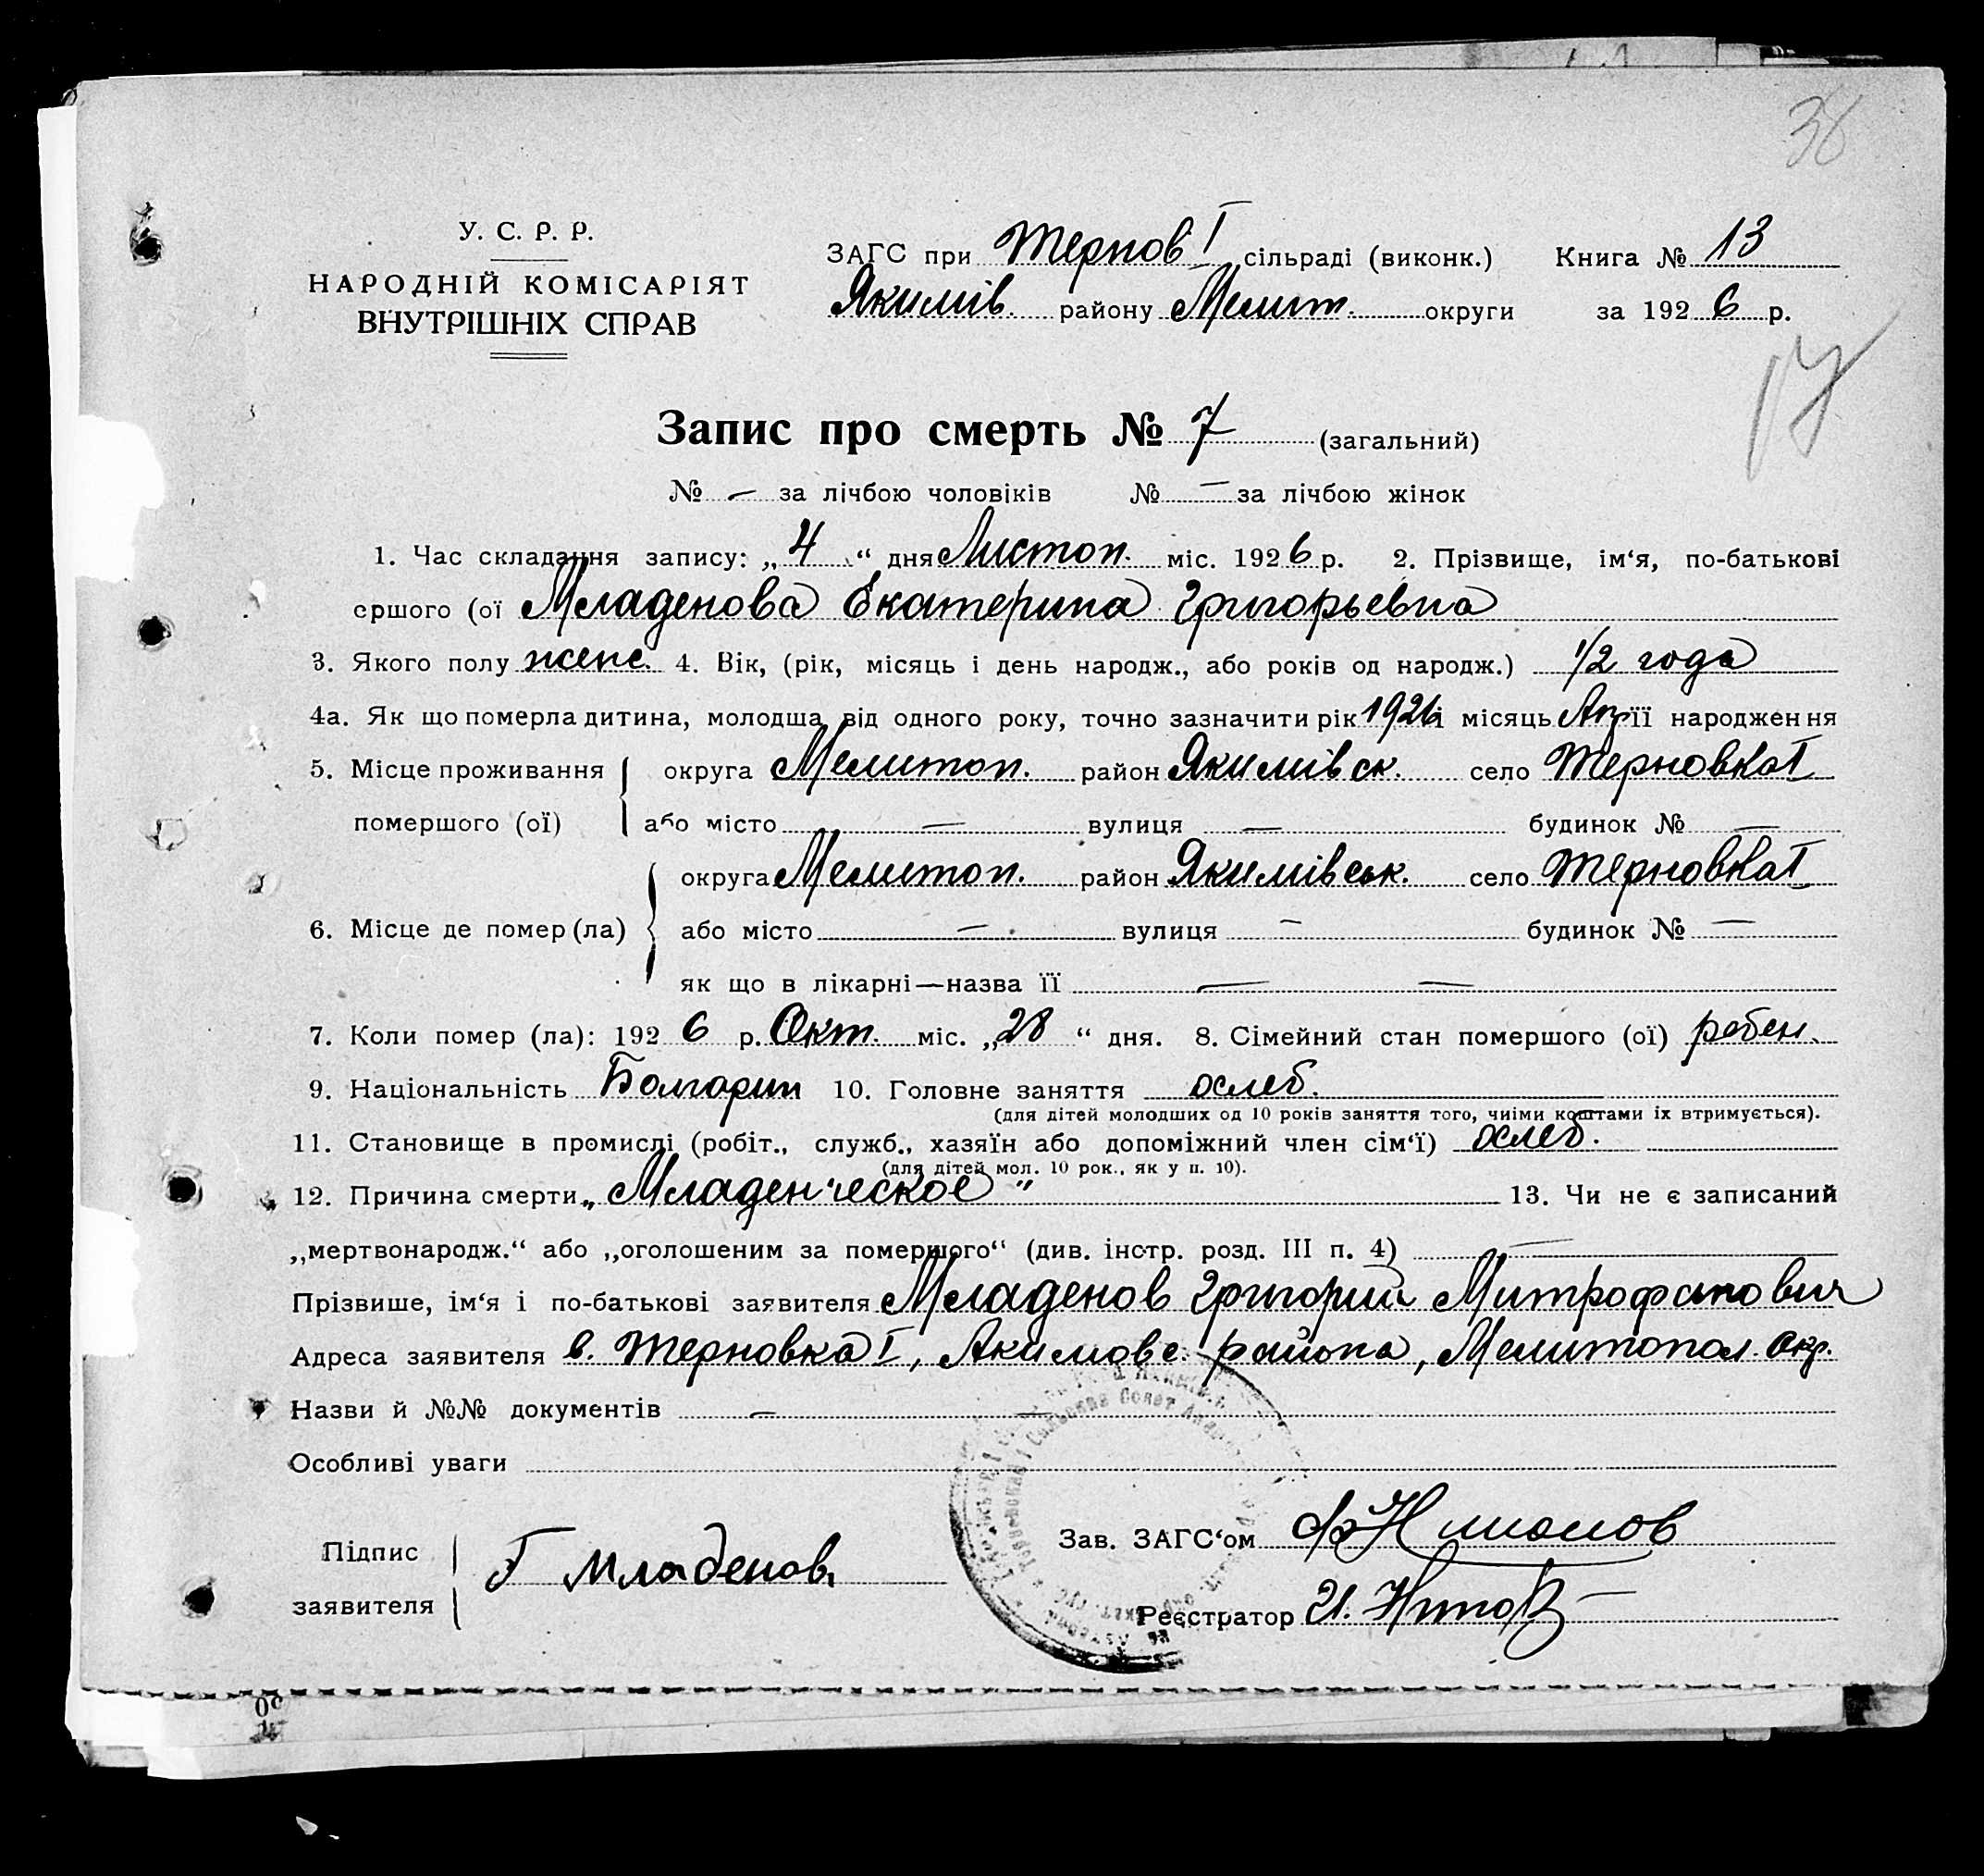 38
У. С. Р. Р.
НАРОДНІЙ КОМІСАРІЯТ
ВНУТРІШНІХ СПРАВ
ЗАГС при Тернов I сільраді (виконк.) Книга № 13
Якимів. району Мелит. округи за 1926 р.
17
Запис про смерть № 7 (загальний)
№ — за лічбою чоловіків № — за лічбою жінок
1. Час складання запису: „4“ дня Листоп. міс. 1926 р. 2. Прізвище, ім‘я, по-батькові
ершого (ої Младенова Екатерина Григорьевна
3. Якого полу женс. 4. Вік, (рік, місяць і день народж., або років од народж.) 1/2 года
4а. Як що померла дитина, молодша від одного року, точно зазначити рік 1926 і місяць Апр її народження
5. Місце проживання округа Мелитоп. район Якимівск. село Терновка I
помершого (ої) або місто — вулиця — будинок № —
округа Мелитоп. район Якимівськ. село Терновка I
6. Місце де помер (ла) або місто — вулиця — будинок № —
як що в лікарні—назва її — —
7. Коли помер (ла): 1926 р. Окт. міс. „28“ дня. 8. Сімейний стан помершого (ої) ребен.
9. Національність Болгарин 10. Головне заняття осмеб.
(для дітей молодших од 10 років заняття того, чиіми коштами іх втримується).
11. Становище в промислі (робіт., служб., хазяїн або допоміжний член сім‘ї) осмеб.
(для дітей мол. 10 рок., як у п. 10).
12. Причина смерти „Младенческое“ 13. Чи не є записаний
„мертвонародж.“ або „оголошеним за помершого“ (див. інстр. розд. III п. 4) —
Прізвище, ім‘я і по-батькові заявителя Младенов Григорий Митрофанович
Адреса заявителя в. Терновка I, Акимовс. района, Мелитопол. окр.
Назви й №№ документів — —
Особливі уваги
Підпис
заявителя Г Младенов
Зав. ЗАГС‘ом
Реєстратор И.